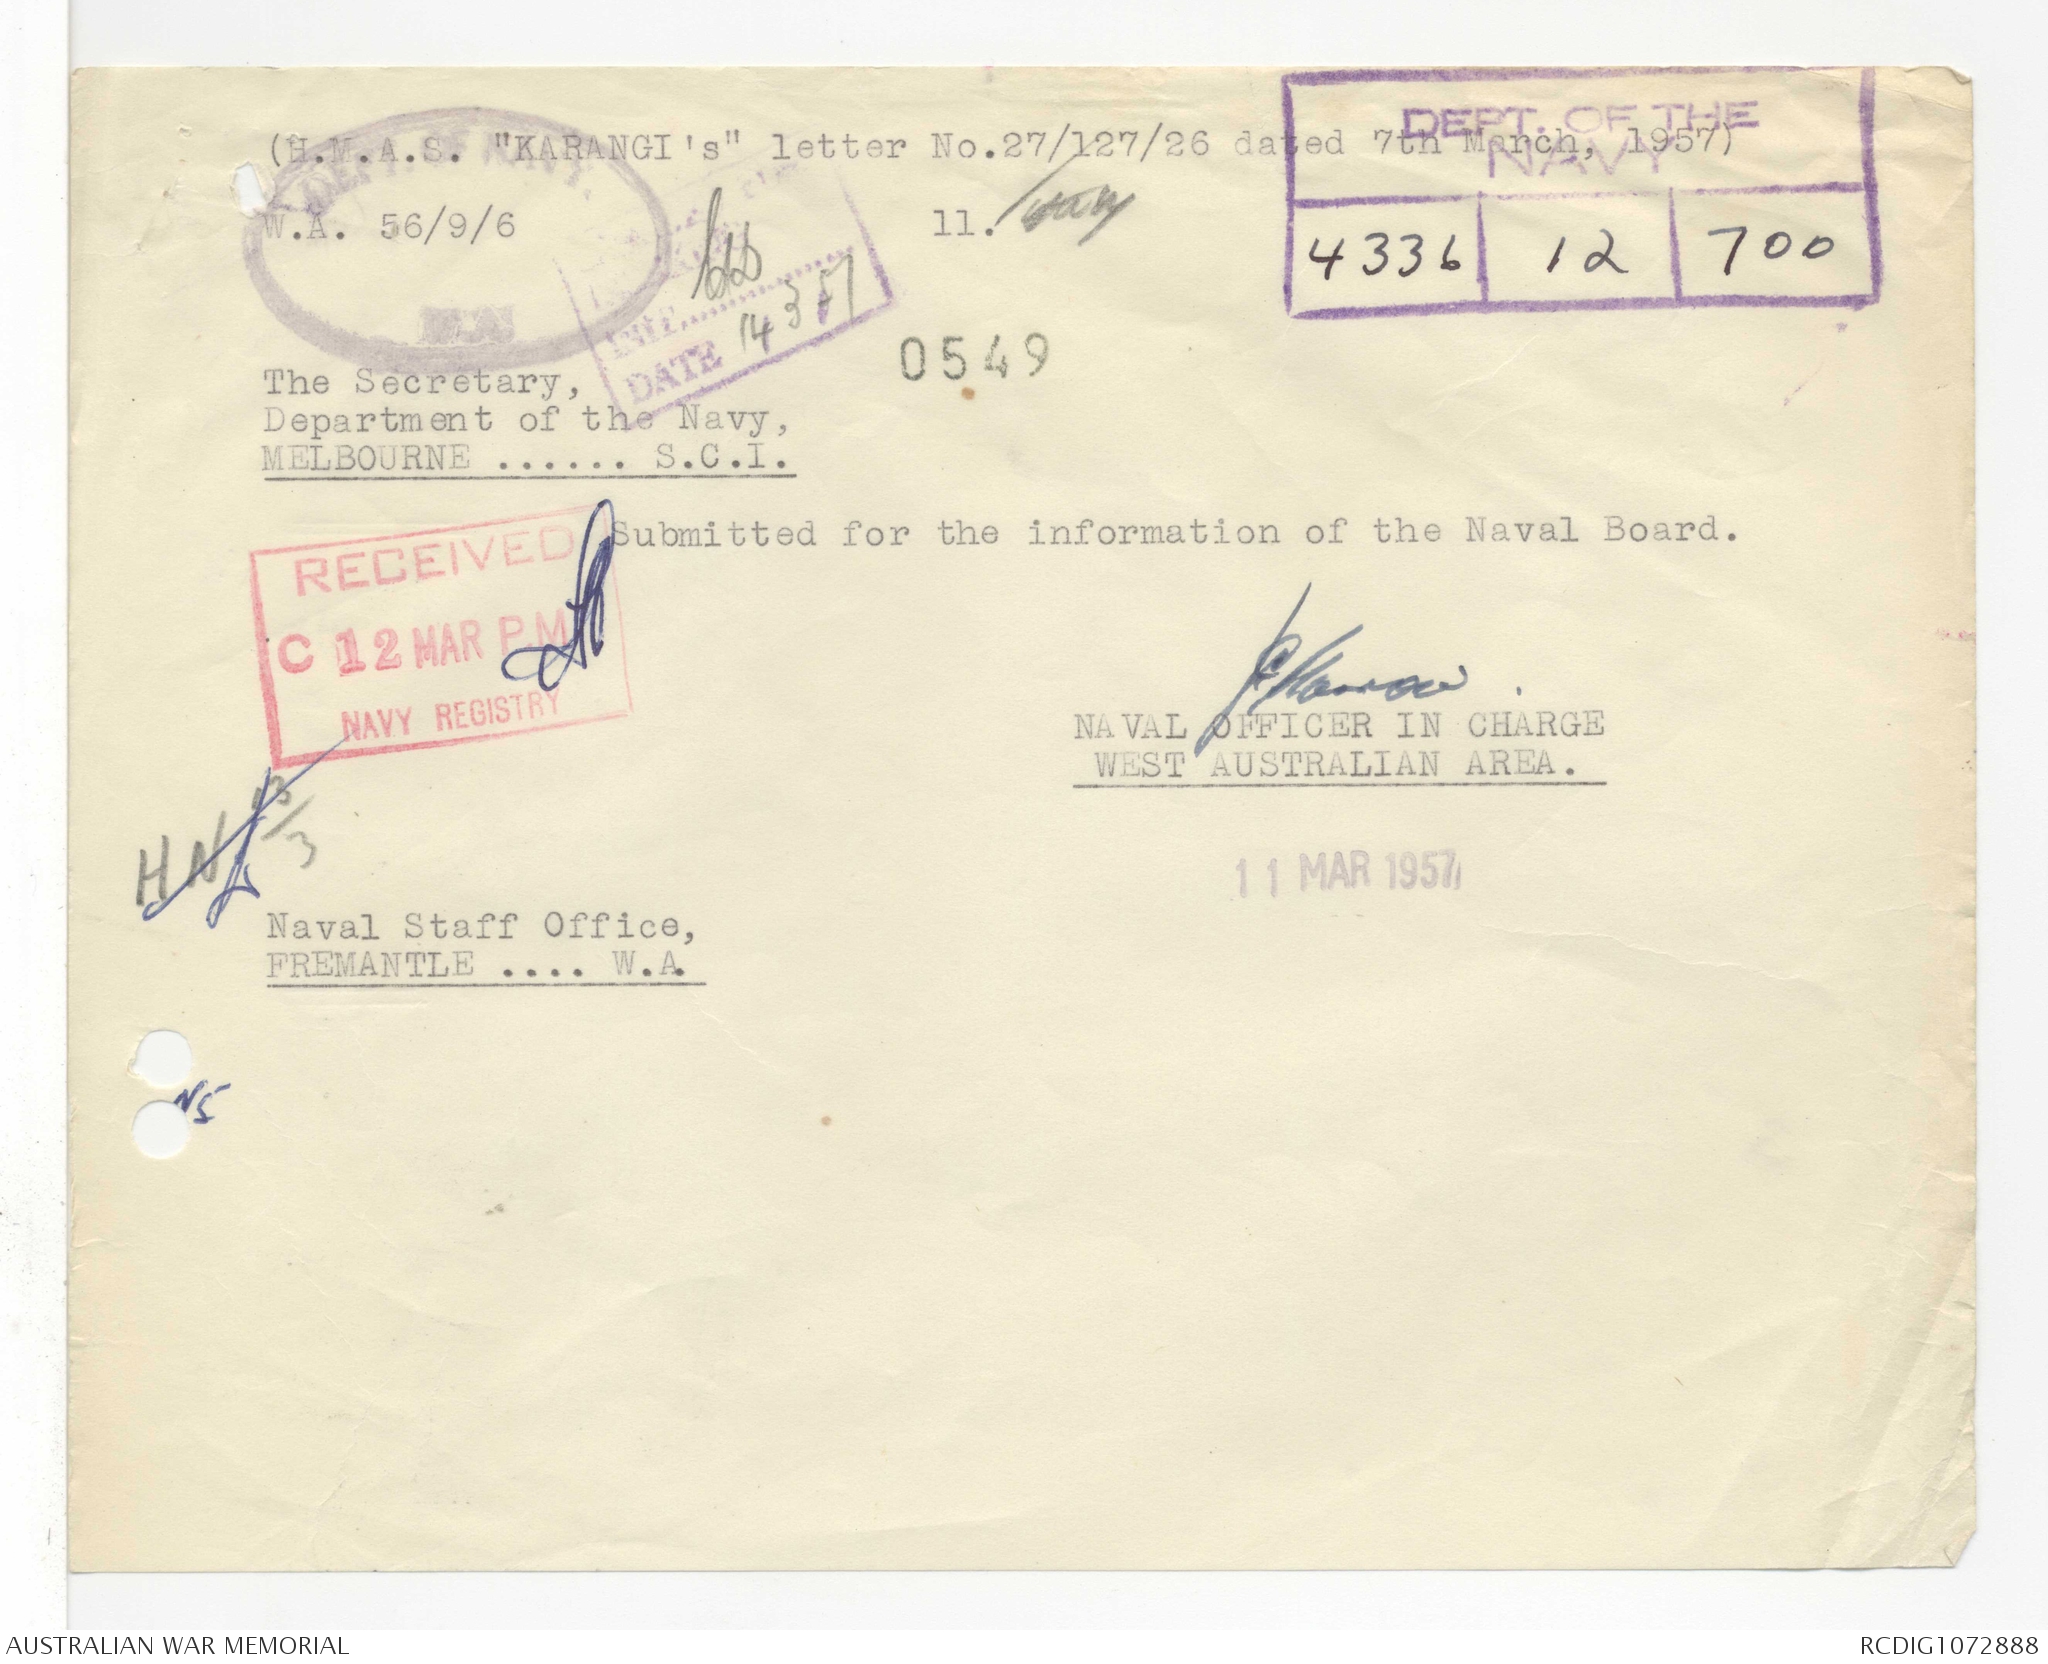 (H.M.A.S. "KARANGI's" letter No.27/127/26 dated 7th March, 1957)
DEPT. OF THE
NAVY
4336 12 700
W.A. 56/9/6
11.
DEPT. OF NAVY.
DATE 14 3 57
0549
The Secretary,
Department of the Navy,
MELBOURNE ...... S.C.I.
Submitted for the information of the Naval Board.
RECEIVED
C 12 MAR P.M
NAVY REGISTRY
NAVAL OFFICER IN CHARGE
WEST AUSTRALIAN AREA.
11 MAR 1957
HN 13/3
Naval Staff Office,
FREMANTLE .... W.A.
NS
AUSTRALIAN WAR MEMORIAL
RCDIG1072888